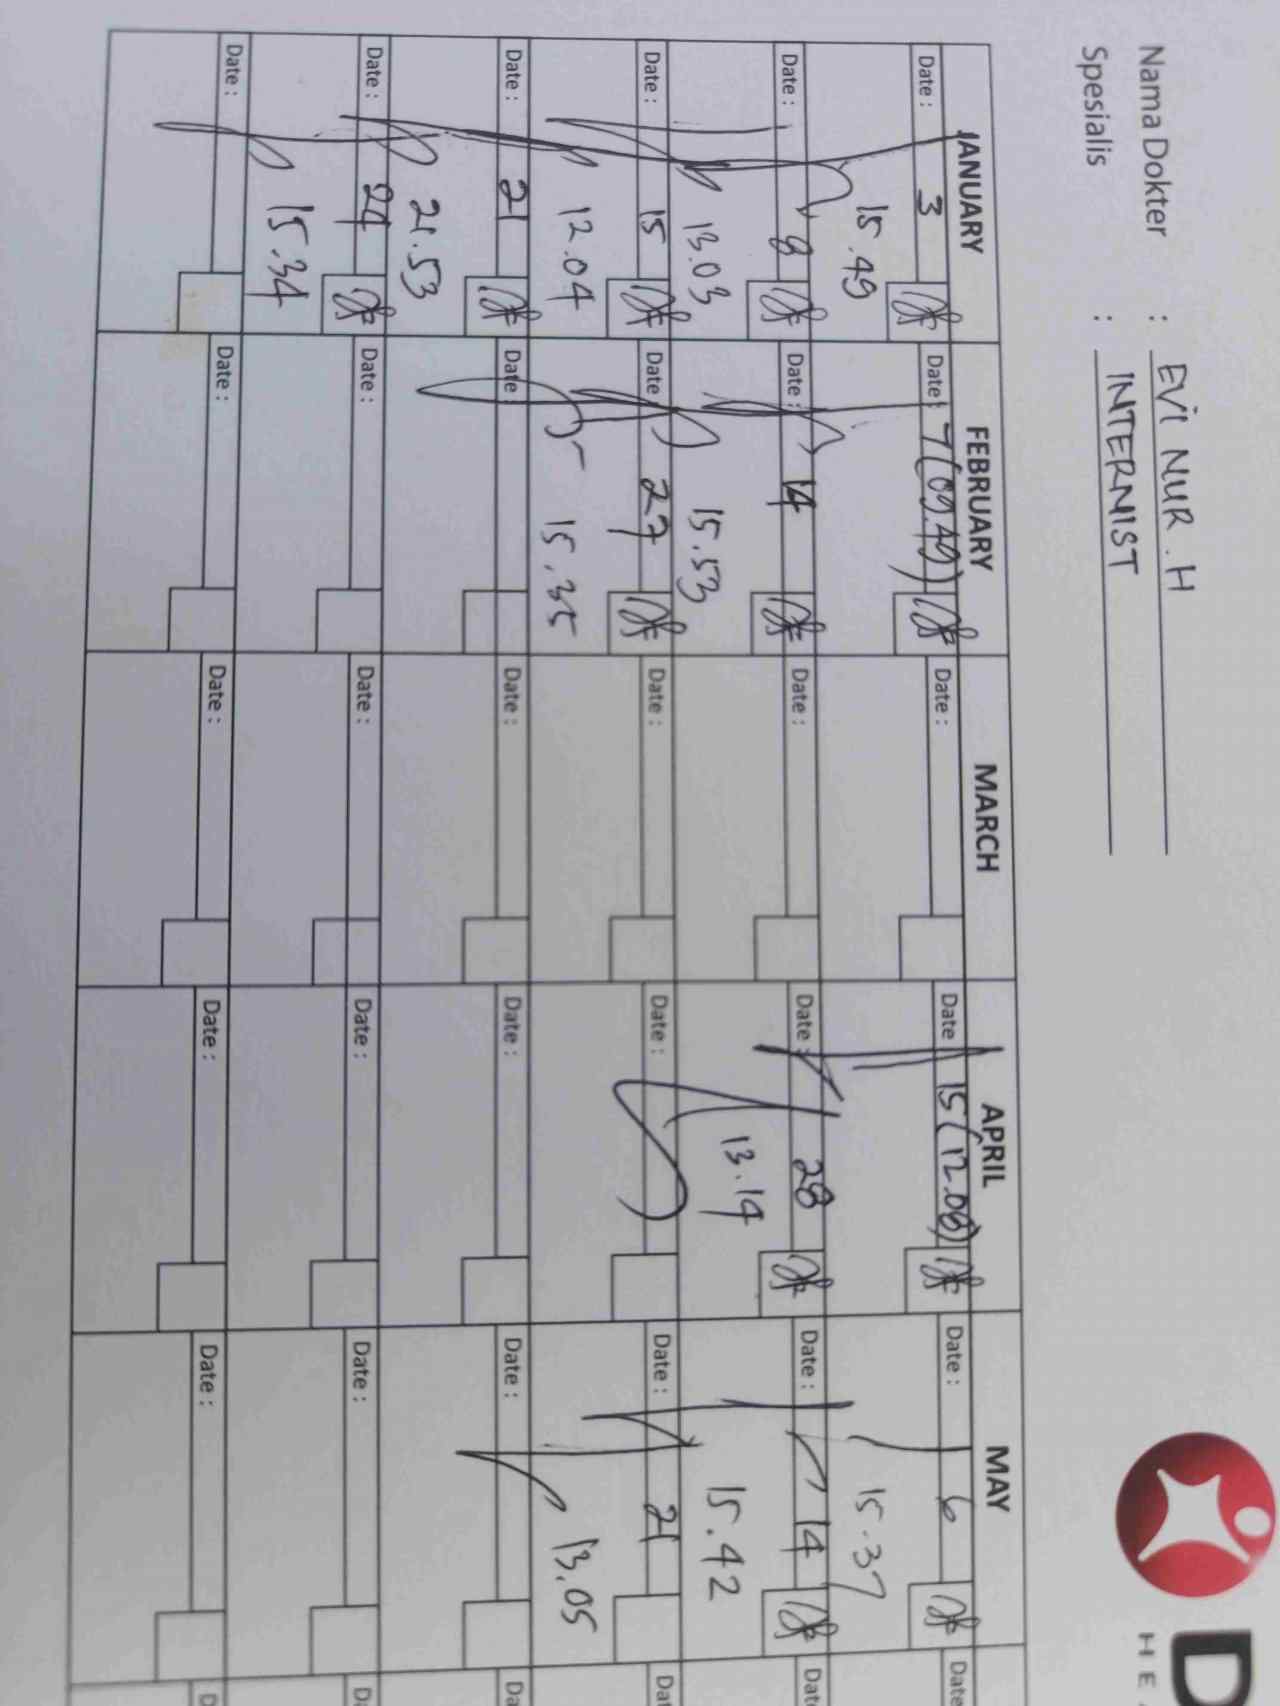 Nama Dokter : EVI NUR . H
Spesialis : INTERNIST
D
HE
JANUARY FEBRUARY MARCH APRIL MAY
Date : 3 Date : 7 (09.49) Date : Date 15 (12.06) Date : 6 Date
15.49 15.37
Date : 8 Date : 14 Date : Date : 28 Date : 14 Dat
13.03 15.53 13.14 15.42
Date : 15 Date 27 Date : Date : Date : 21 Dat
12.04 15.35 13.05
Date : 21 Date : Date : Date : Date : Da
21.53
Date : 24 Date : Date : Date : Date : Da
15.34
Date : Date : Date : Date : Date : D